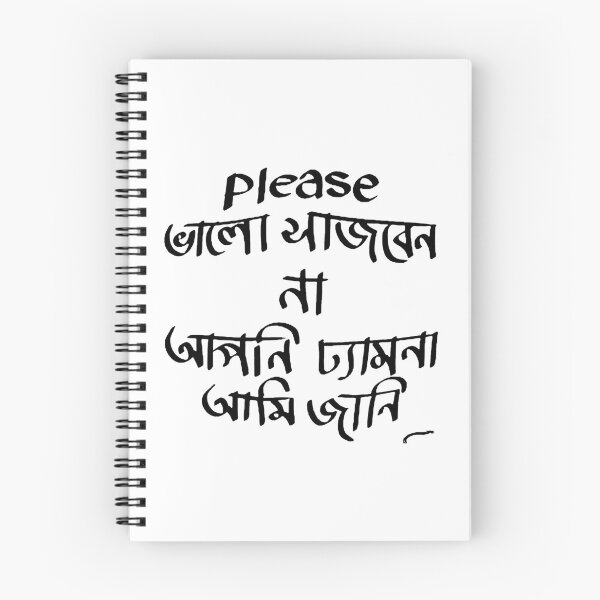 please
ভালো সাজবেন
না
আপনি ঢ্যামনা
আমি জানি